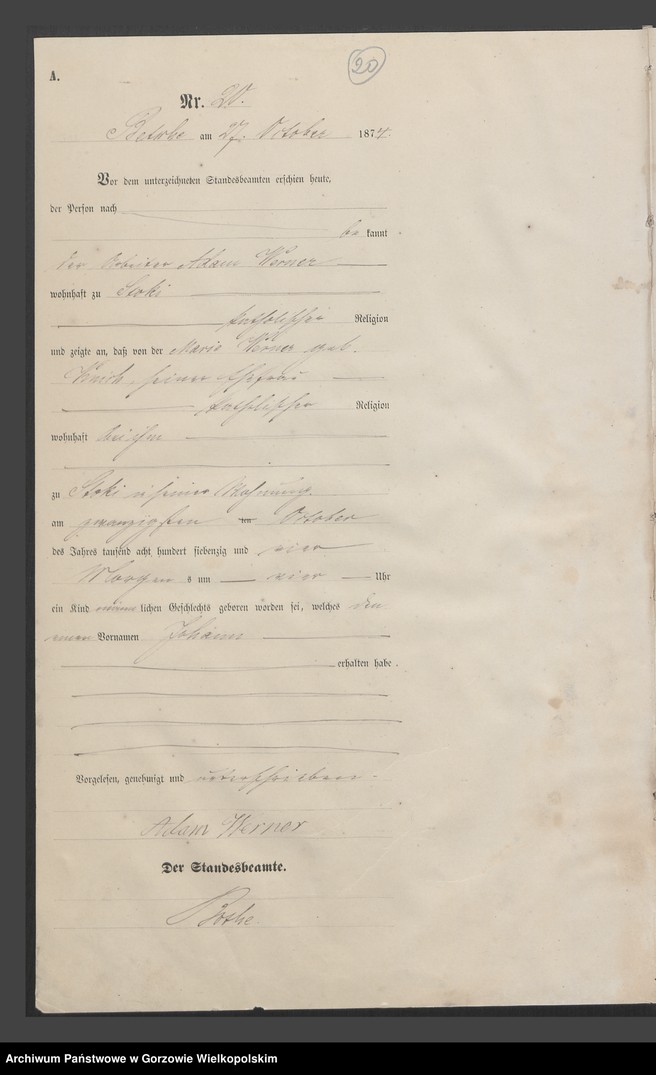 20
A.
Nr. 20.
am 27. October 1874.
Vor dem unterzeichneten Standesbeamten erschien heute,
der Person nach
bekannt
der Arbeiter Adam Werner
wohnhaft zu Stoki
katholischer Religion
und zeigte an, daß von der Marie Werner geb.
seiner Ehefrau
katholischer Religion
wohnhaft bei ihm
zu Stoki in seiner Wohnung
am zwanzigsten ten October
des Jahres tausend acht hundert siebenzig und vier
Morgens um vier Uhr
ein Kind männlichen Geschlechts geboren worden sei, welches den
einen Vornamen Johann
erhalten habe.
Vorgelesen, genehmigt und unterschrieben.
Adam Werner
Der Standesbeamte.
Bothe
Archiwum Państwowe w Gorzowie Wielkopolskim